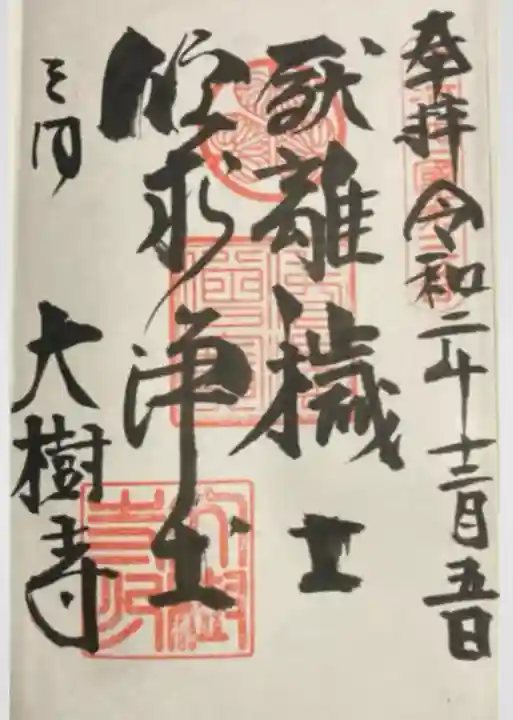 奉拝 令和二年十二月五日
厭離穢土
欣求浄土
三河 大樹寺